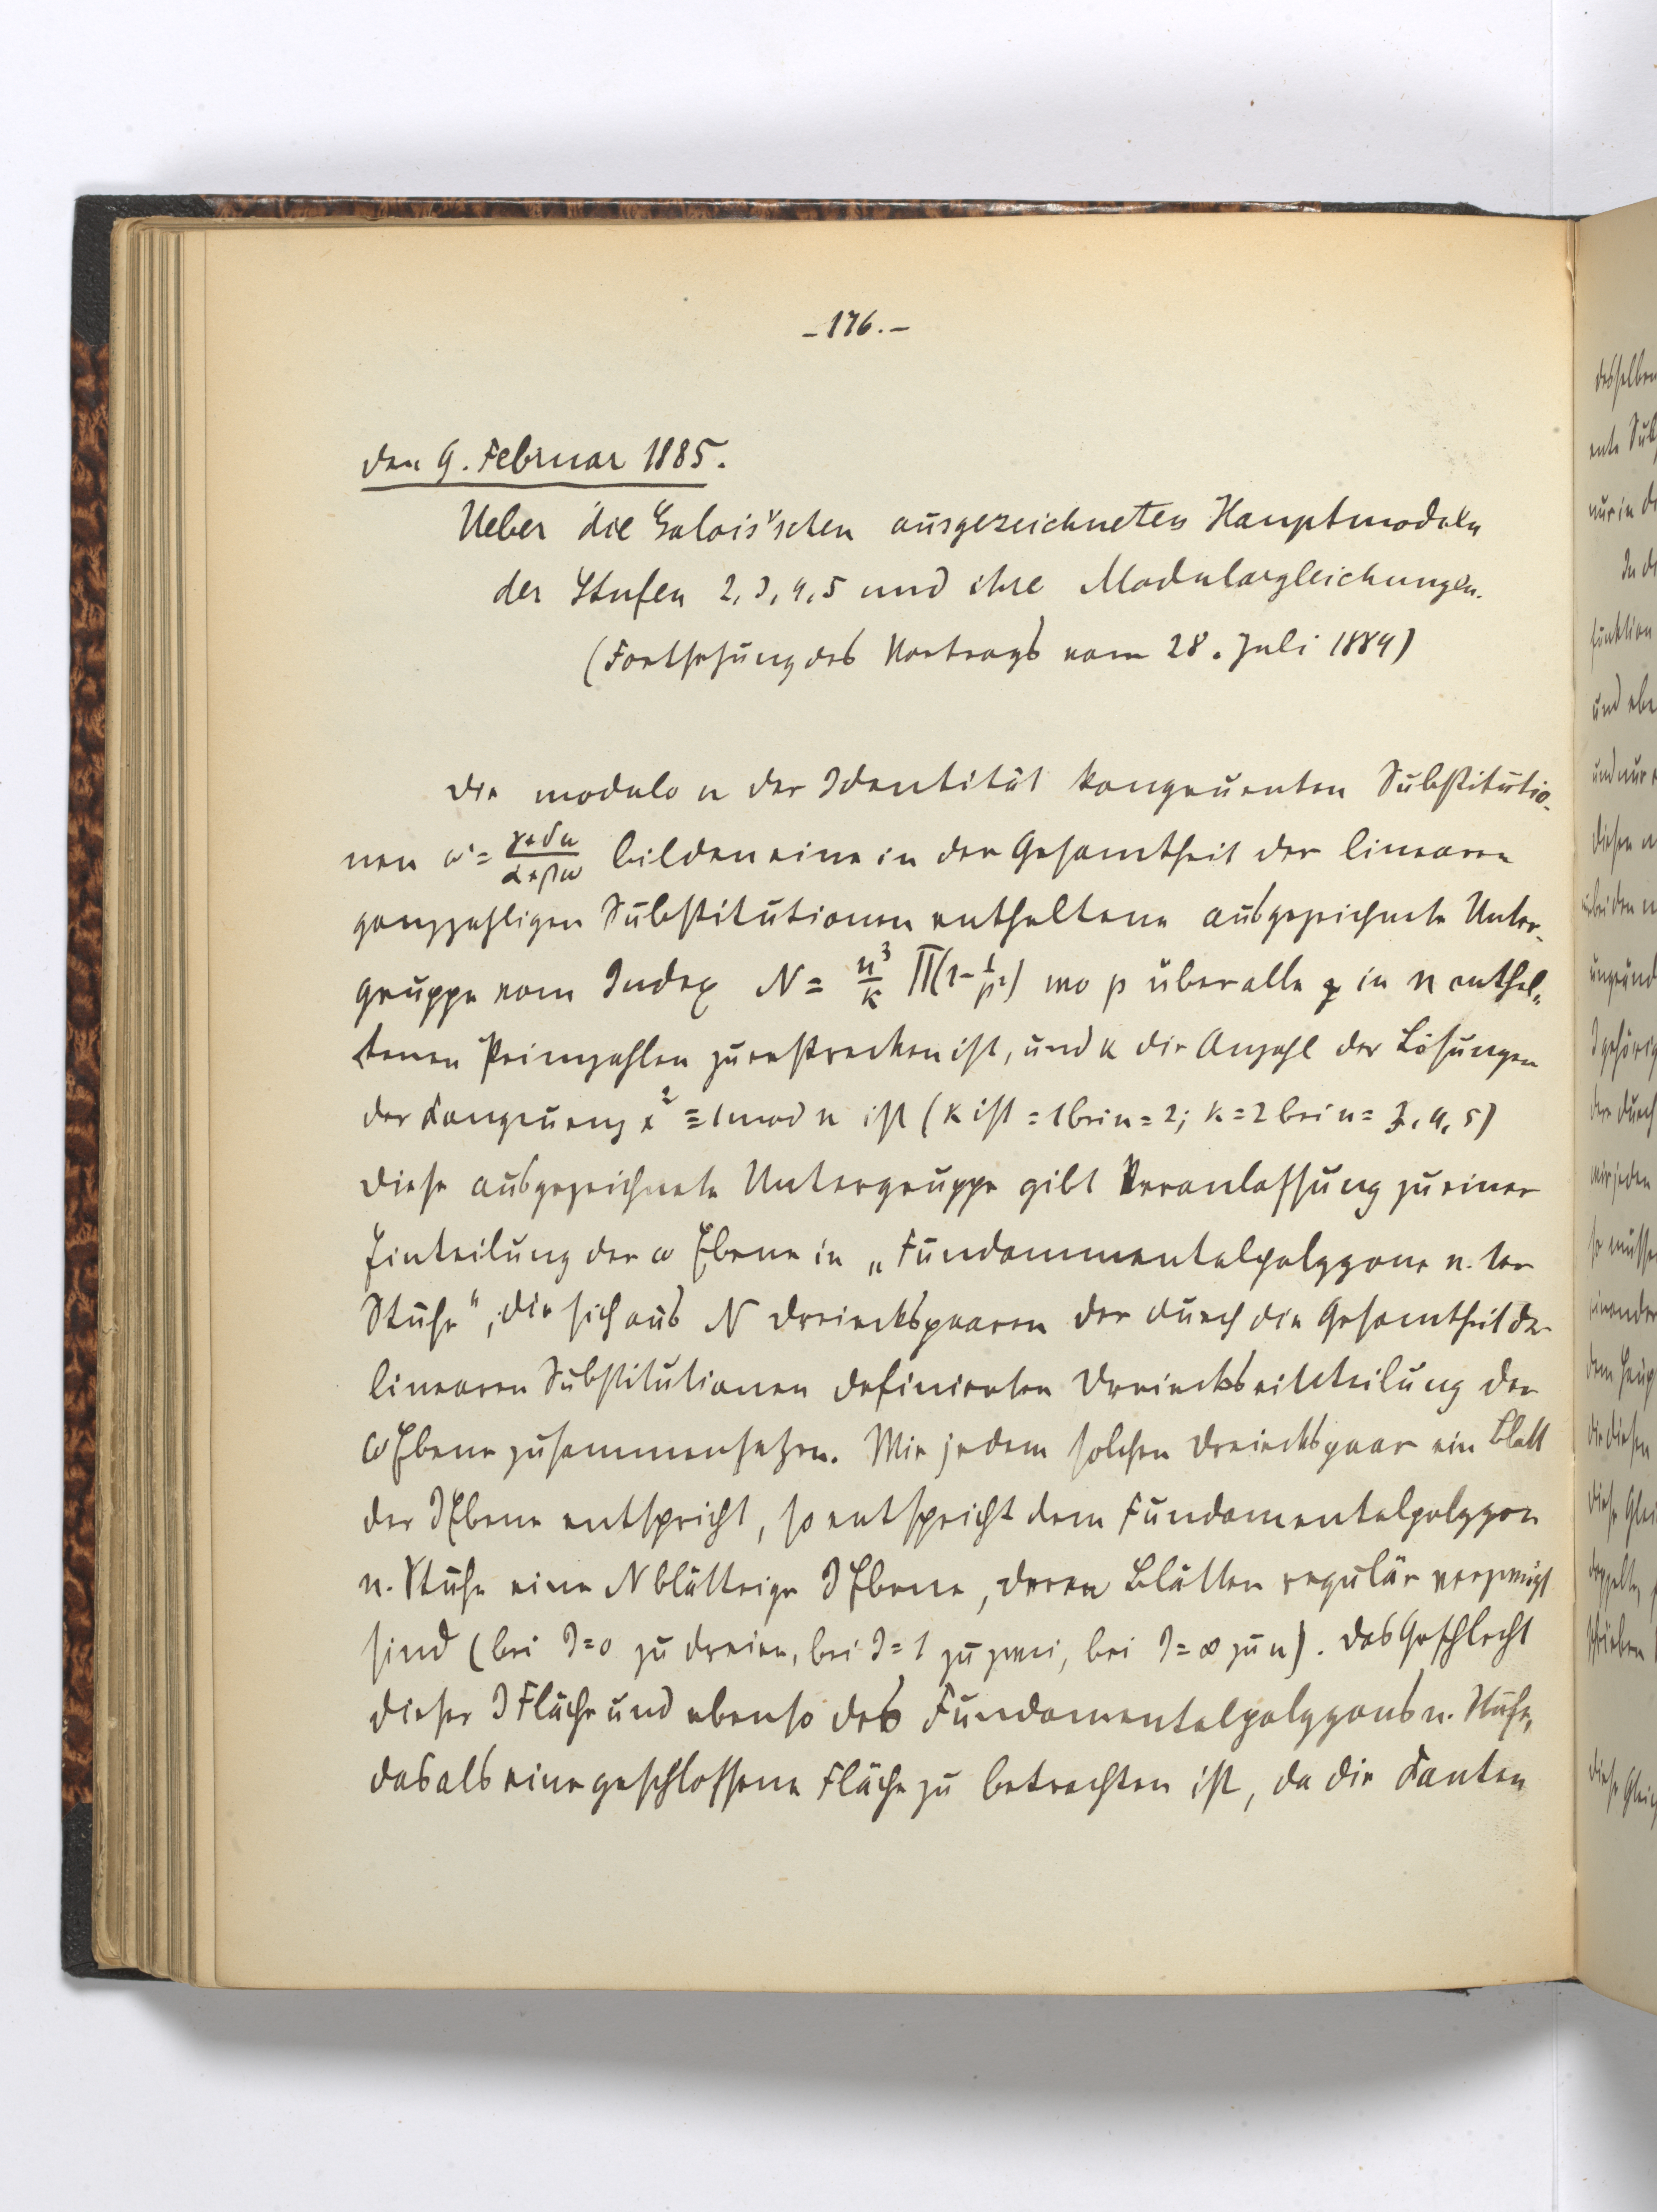 - 176. -
den 9. Februar 1885.
Ueber die Galois'schen ausgezeichneten Hauptmoduln
der Stufen 2, 3, 4, 5 und ihre Modulargleichungen.
(Fortsetzung des Vortrags vom 28. Juli 1884)
Die modulo n der Identität kongruenten Substitutio-
nen ω' = (γ+δω)/(α+βω) bilden eine in der Gesamtheit der linearen
ganzzahligen Substitutionen enthaltene ausgezeichnete Unter-
gruppe vom Index N = n³/k ∏(1-1/p²) wo p über alle in n enthal-
tenen Primzahlen zu erstrecken ist, und k die Anzahl der Lösungen
der Kongruenz x² ≡ 1 mod n ist (k ist = 1 bei n = 2; k = 2 bei n = 3, 4, 5)
Diese ausgezeichnete Untergruppe gibt Veranlassung zu einer
Einteilung der ω Ebene in „Fundammentalpolygone n. ter
Stufe", die sich aus N Dreieckspaaren der durch die Gesamtheit der
linearen Substitutionen definierten Dreieckseinteilung der
ω Ebene zusammensetzen. Wie jedem solchen Dreieckspaar ein Blatt
der J Ebene entspricht, so entspricht dem Fundamentalpolygon
n. Stufe eine N blättrige J Ebene, deren Blätter regulär verzweigt
sind (bei J = 0 zu dreien, bei J = 1 zu zwei, bei J = ∞ zu n). Das Geschlecht
dieser J Fläche und ebenso des Fundamentalpolygons n. Stufe,
das als eine geschlossene Fläche zu betrachten ist, da die Kanten
desselben
nur in
und nur